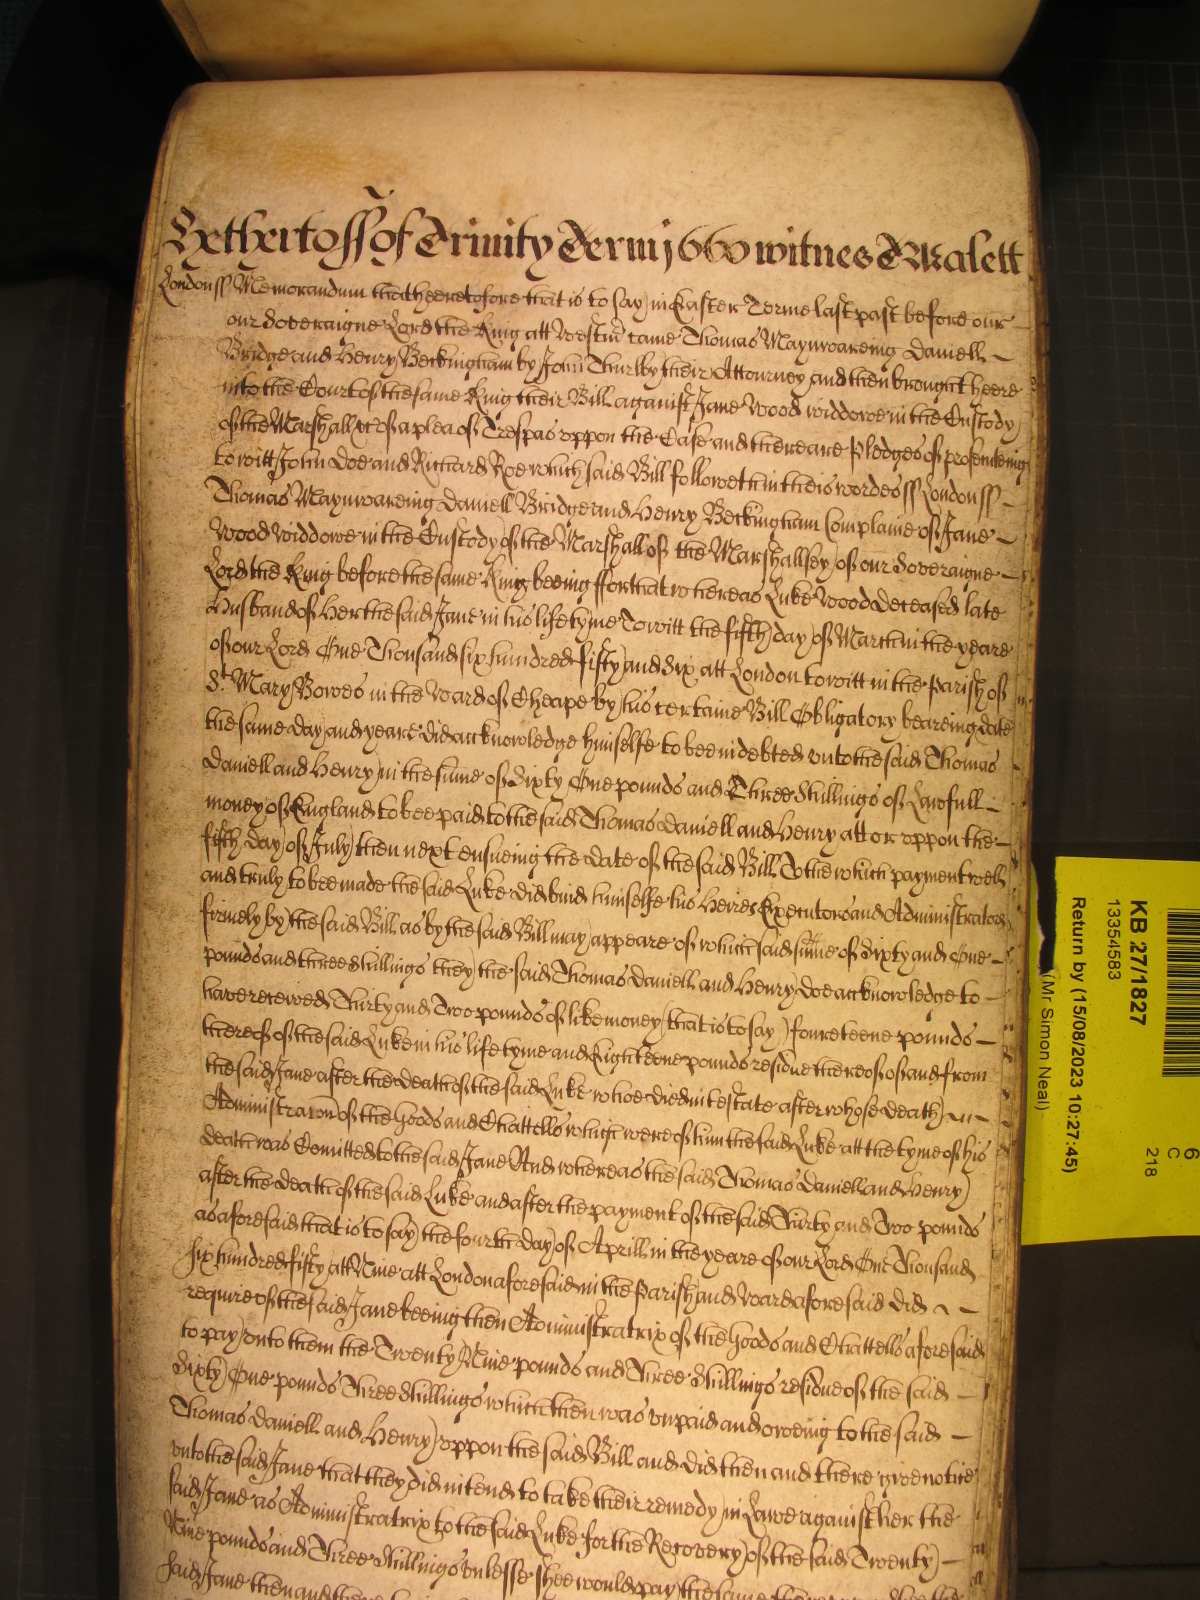 Yet hertoff of Trinity Term 1660 witnes T Malett
London ss Memorandum that heeretofore that is to say in Easter Terme last past before our
our Soveraigne Lord the King att Westm̄ came Thomas Maynwareing Daniell
Bridge and Henry Beckingham by John Thurlby their Attourney and then brought heere
into the Court of the same King their Bill against Jane Wood widdowe in the Custody
of the Marshall &c of a plea of Trespas uppon the Case and there are Pledges of prosecuteing
to witt John Doe and Richard Roe which said Bill followeth in theis wordes ss London ss
Thomas Maynwareing Daniell Bridge and Henry Beckingham Complaine of Jane
Wood widdowe in the Custody of the Marshall of the Marshallsey of our Soveraigne
Lord the King before the same King beeing ffor that whereas Luke Wood deceased late
Husband of Her the said Jane in his life tyme To witt the fifth day of March in the yeare
of our Lord One Thousand six hundred fifty and six att London to witt in the Parish of
St Mary Bowes in the Ward of Cheape by his certaine Bill Obligatory beareing date
the same day and yeare did acknowledge himselfe to bee indebted unto the said Thomas
Daniell and Henry in the sume of Sixty One pounds and Three Shillings of Lawfull
money of England to bee paid to the said Thomas Daniell and Henry att or uppon the
fifth day of July then next ensueing the date of the said Bill To the which payment well
and truly to bee made the said Luke did bind himselfe his Heires Executors and Administrators
firmely by the said Bill as by the said Bill may appeare of which said sume of Sixty and One
pounds and three shillings they the said Thomas Daniell and Henry doe acknowledge to
have received Thirty and Two pounds of like money (that is to say) foureteene pounds
thereof of the said Luke in his life tyme and Eighteene pounds residue thereof of and from
the said Jane after the death of the said Luke whoe died intestate after whose death
Administracon of the Goods and Chattells which were of him the said Luke att the tyme of his
death was Comitted to the said Jane And whereas the said Thomas Daniell and Henry
after the death of the said Luke and after the payment of the said Thirty and Two pounds
as aforesaid that is to say the fourth day of Aprill in the yeare of our Lord One Thousand
six hundred fifty att Nine att London aforesaid in the Parish and Ward aforesaid did
require of the said Jane beeing then Administratrix of the Goods and Chattells aforesaid
to pay unto them the Twenty Nine pounds and Three Shillings residue of the said
Sixty One pounds Three shillings which then was unpaid and oweing to the said
Thomas Daniell and Henry uppon the said Bill and did then and there give notice
unto the said Jane that they did intend to take their remedy in Lawe against her the
said Jane as Administratrix to the said Luke for the Recovery of the said Twenty
Nine pounds and Three Shillings unlesse shee would pay the same
said Jane then and there
KB 27/1827
13354583
Return by (15/08/2023 10:27:45)
(Mr Simon Neal)
6
C
218